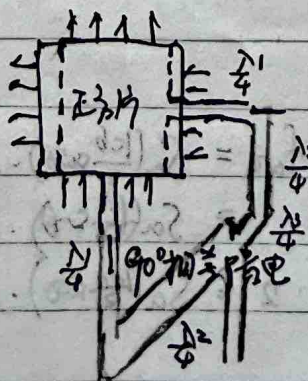 正方片
λ1
4
λ
4
λ
4
λ1
4
90°相差
馈电
λ2
4